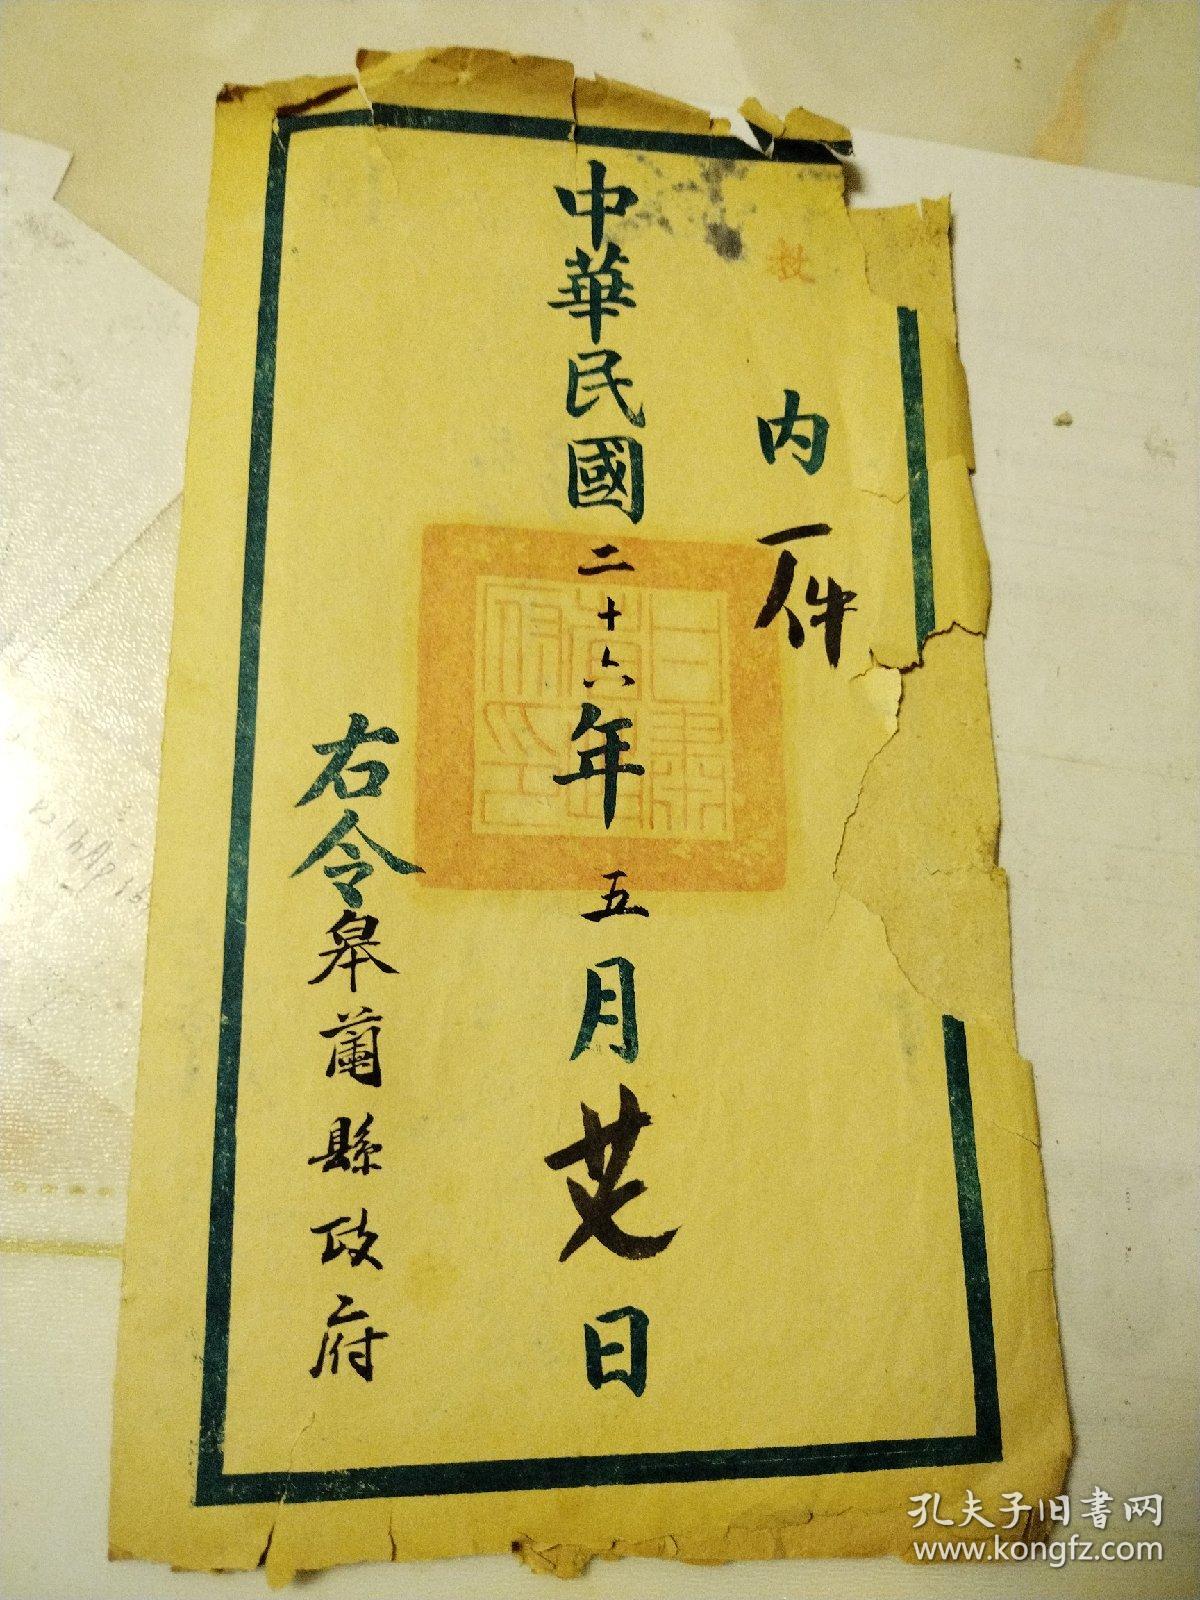 内一件
中華民國二十六年五月廿九日
右令皋蘭縣政府
孔夫子旧書网
www.kongfz.com